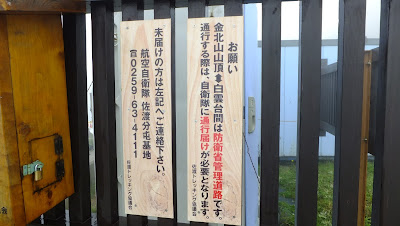 お願い
金北山山頂⇔白雲台間は防衛省管理道路です。
通行する際は、自衛隊に通行届けが必要となります。
佐渡トレッキング協議会
未届けの方は左記へご連絡下さい。
航空自衛隊 佐渡分屯基地
☎0259-63-4111
佐渡トレッキング協議会